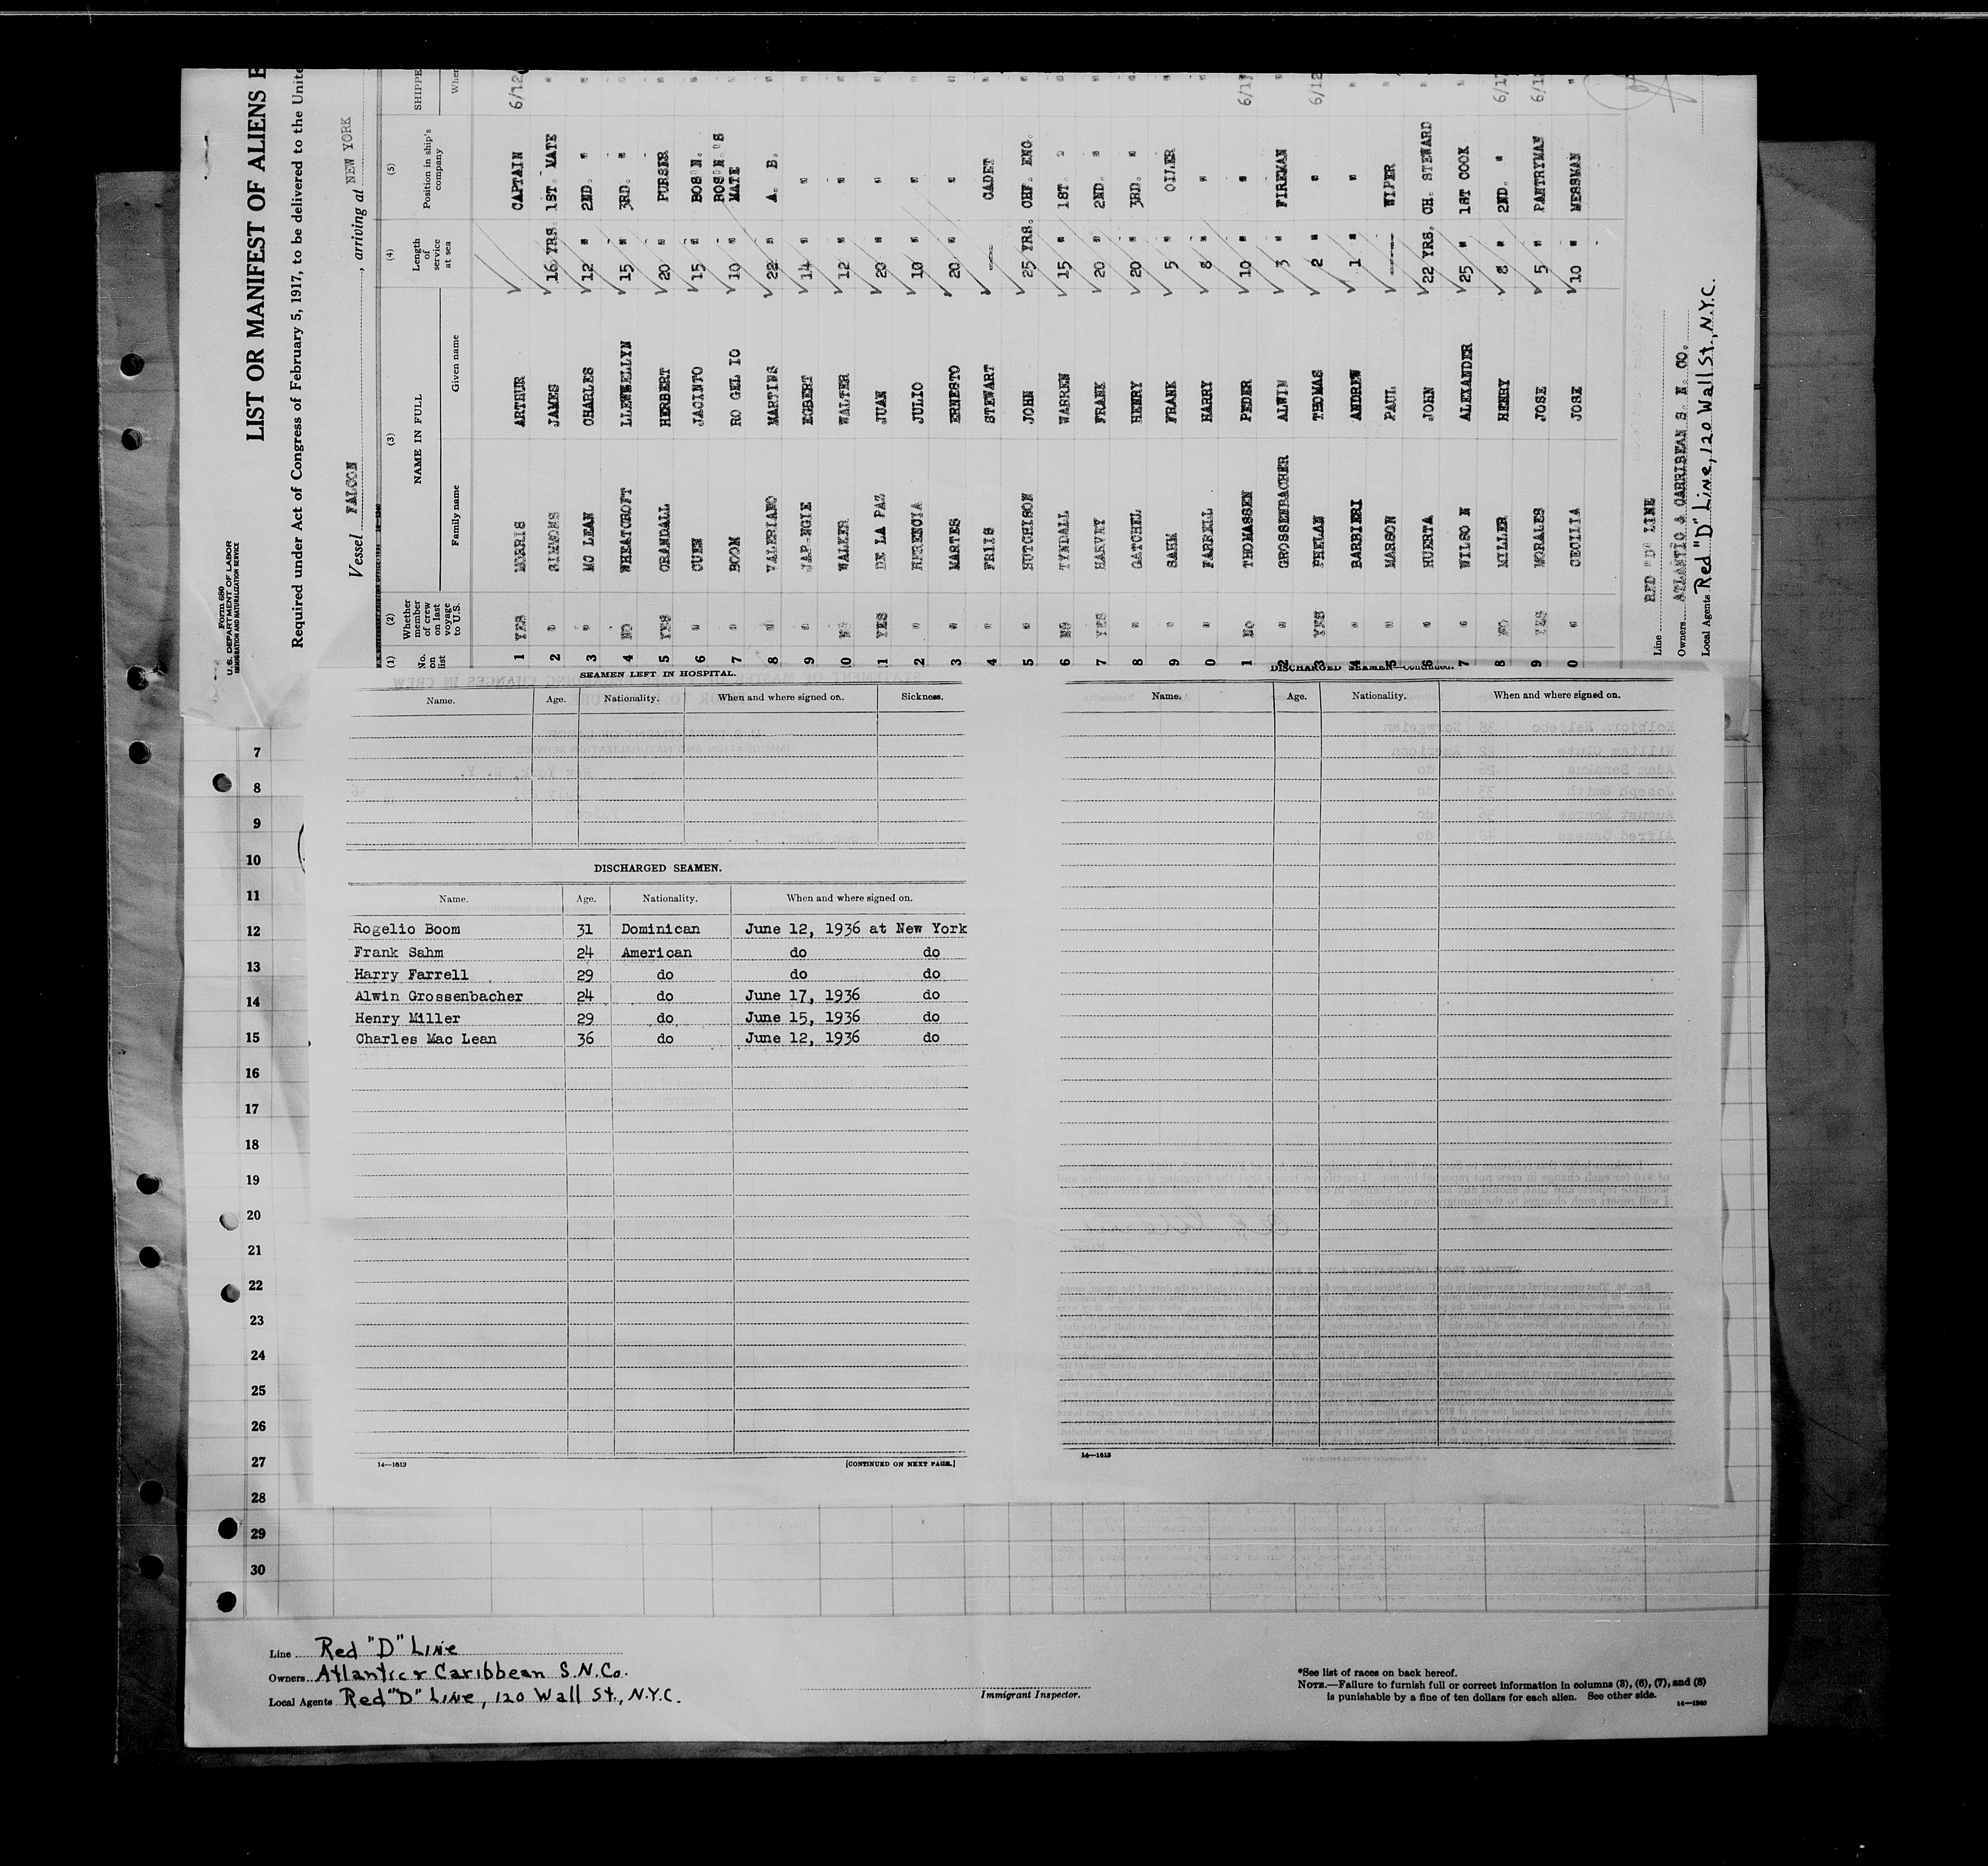 Form 680
U.S. DEPARTMENT OF LABOR
IMMIGRATION AND NATURALIZATION SERVICE
LIST OR MANIFEST OF ALIENS E
Required under Act of Congress of February 5, 1917, to be delivered to the Unite
Vessel FALCON, arriving at NEW YORK
(1) (2) (3) (4) (5)
No. on list Whether member of crew on last voyage to U.S. NAME IN FULL Length of service at sea Position in ship's company SHIPE
Family name Given name Wher
1 YES MORRIS ARTHUR CAPTAIN 6/12
2 " SIMMONS JAMES 16 YRS. 1ST. MATE "
3 " MC LEAN CHARLES 12 " 2ND. " "
4 NO WHEATCROFT LLEWELLYN 15 " 3RD. " "
5 YES CRANDALL HERBERT 20 " PURSER "
6 " CUEN JACINTO 15 " BOS'N. "
7 " BOOM RO GEL IO 10 " BOS'N.'S MATE "
8 " VALERIANO MARTINS 22 " A. B. "
9 " EGBERT 14 " " "
10 NO WALKER WALTER 12 " " "
11 YES DE LA PAZ JUAN 20 " " "
2 " HERENCIA JULIO 10 " " "
3 " MARTES ERNESTO 20 " " "
4 " FRIIS STEWART ---- CADET "
5 " HUTCHISON JOHN 25 YRS. CHF. ENG. "
6 NO TYNDALL WARREN 15 " 1ST. " "
7 YES HARVEY FRANK 20 " 2ND. " "
8 " GATCHEL HENRY 20 " 3RD. " "
9 " SAHM FRANK 5 " OILER "
0 " FARRELL HARRY 8 " " "
1 NO THOMASSEN PEDER 10 " " 6/17
2 " GROSSENBACHER ALWIN 3 " FIREMAN "
3 YES PHELAN THOMAS 2 " " 6/12
4 " BARBIERI ANDREW 1 " " "
5 " MARSON PAUL ----- WIPER "
6 " HUERTA JOHN 22 YRS. CH. STEWARD "
7 " WILSO N ALEXANDER 25 " 1ST COOK "
8 NO MILLER HENRY 8 " 2ND. " 6/1
9 YES MORALES JOSE 5 " PANTRYMAN 6/1
0 " CECILIA JOSE 10 " MESSMAN "
Line RED "D" LINE
Owners ATLANTIC & CARIBEAN S. N. CO.
Local Agents Red "D" Line, 120 Wall St., N.Y.C.
SEAMEN LEFT IN HOSPITAL.
Name. Age. Nationality. When and where signed on. Sickness.
DISCHARGED SEAMEN.
Name. Age. Nationality. When and where signed on.
Rogelio Boom 31 Dominican June 12, 1936 at New York
Frank Sahm 24 American do do
Harry Farrell 29 do do do
Alwin Grossenbacher 24 do June 17, 1936 do
Henry Miller 29 do June 15, 1936 do
Charles Mac Lean 36 do June 12, 1936 do
14—1613 [CONTINUED ON NEXT PAGE.]
DISCHARGED SEAMEN—Continued.
Name. Age. Nationality. When and where signed on.
14—1613
7
8
9
10
11
12
13
14
15
16
17
18
19
20
21
22
23
24
25
26
27
28
29
30
Line Red "D" Line
Owners Atlantic & Caribbean S.N.Co.
Local Agents Red "D" Line, 120 Wall St., N.Y.C.
Immigrant Inspector.
*See list of races on back hereof.
NOTE.—Failure to furnish full or correct information in columns (3), (6), (7), and (8)
is punishable by a fine of ten dollars for each alien. See other side.
14—1240